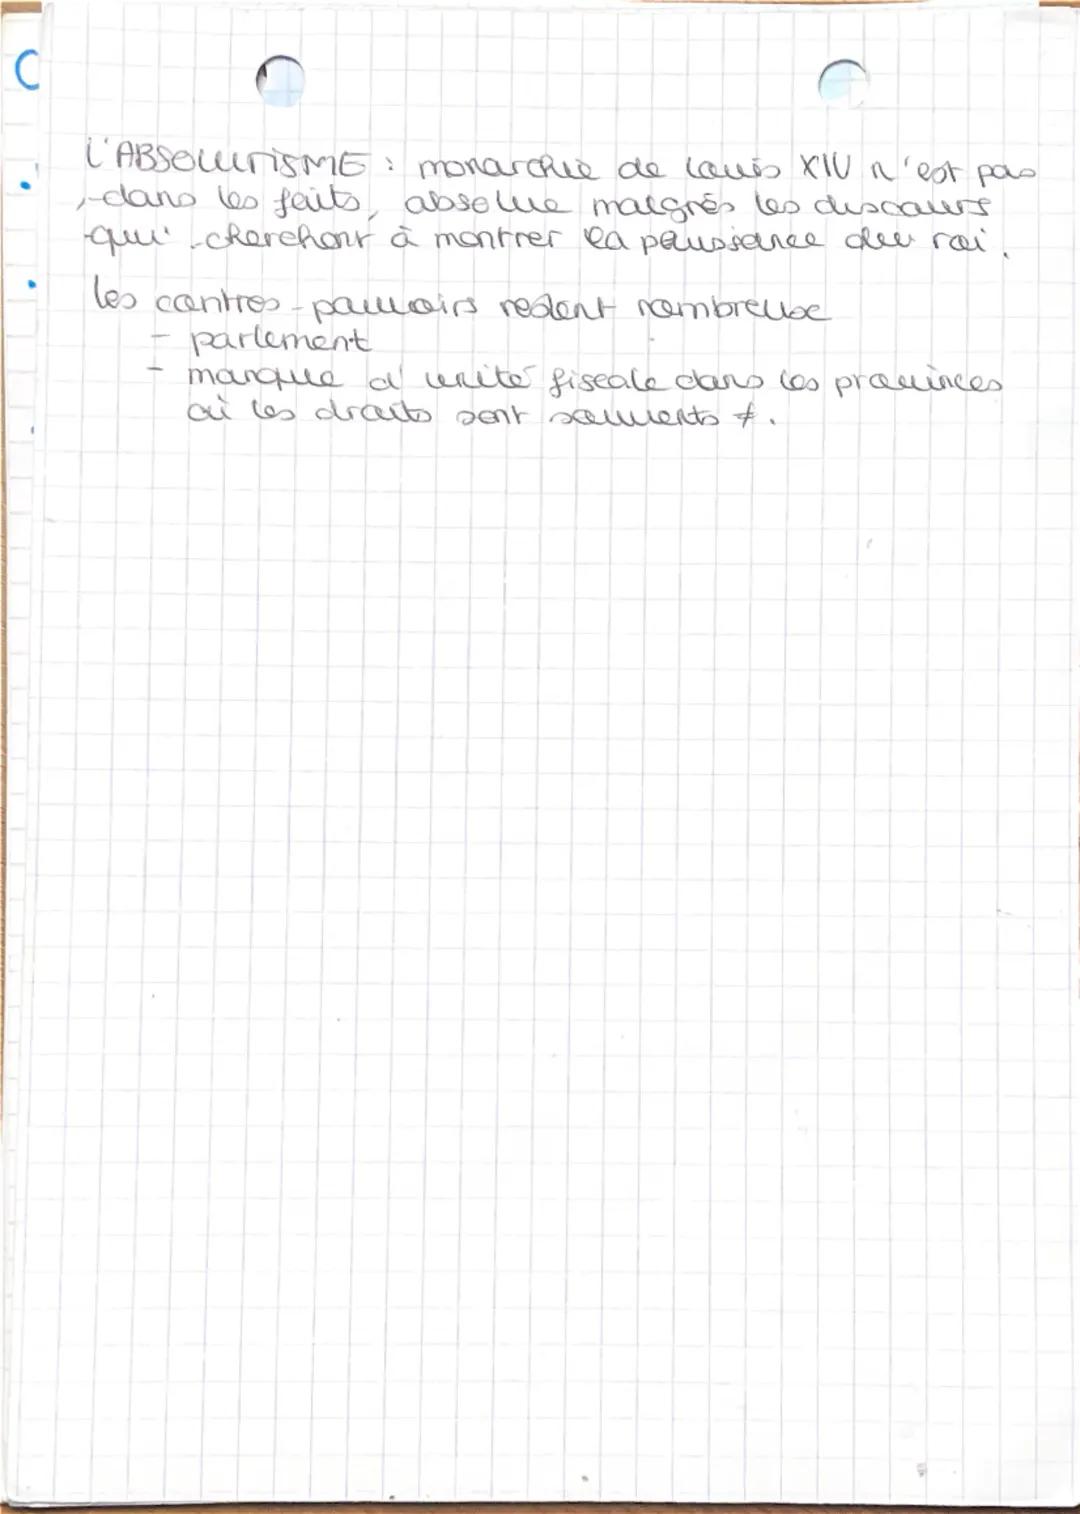 L'ABSOLUTISME : monarchie de Louis XIV n'est pas
, dans les faits, absolue malgrés les discours
qui cherchent à montrer la puissance du roi.
les contres-pouvoirs restent nombreuse
- parlement
- manque d'unité fiscale dans les provinces
où les droits sont souvents ≠.